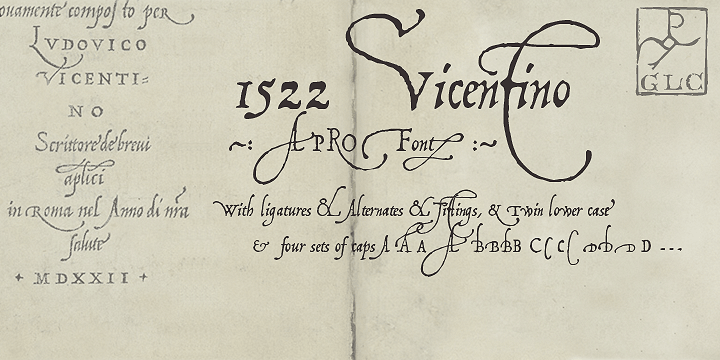 ouamente compos to per
LVDOVICO
VICENTI=
NO
Scrittore de breui
aplici
in Roma nel Anno di nra
salute
+ MDXXII +
1522 Vicentino
~: A PRO Font :~
With ligatures & Alternates & Fittings, & Twin lower case
& four sets of caps A A A A B B B B C C C C D D D D ---
P
GLC